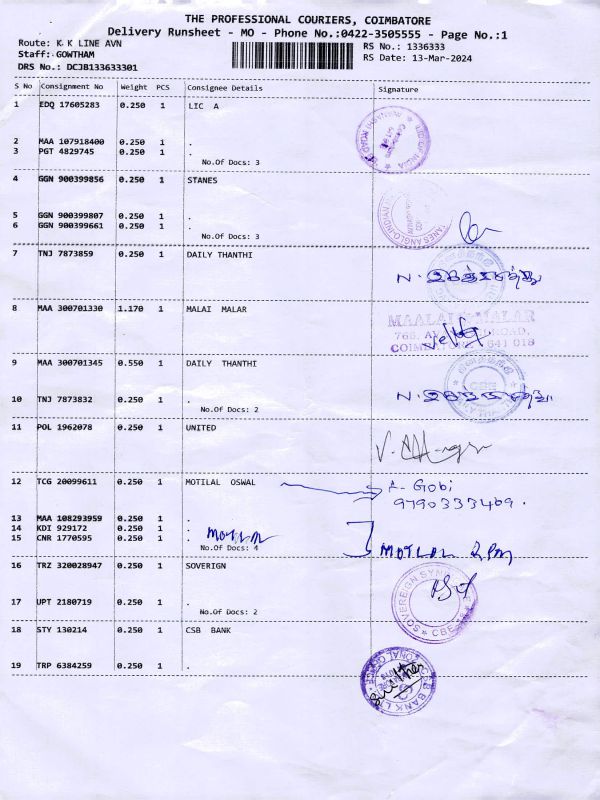 THE PROFESSIONAL COURIERS, COIMBATORE
Delivery Runsheet - MO - Phone No.:0422-3505555 - Page No.:1
Route: K K LINE AVN
RS No.: 1336333
Staff: GOWTHAM
RS Date: 13-Mar-2024
DRS No.: DCJB133633301
S No Consignment No Weight PCS Consignee Details Signature
1 EDQ 17605283 0.250 1 LIC A
2 MAA 107918400 0.250 1 .
3 PGT 4829745 0.250 1 .
No.Of Docs: 3
4 GGN 900399856 0.250 1 STANES
5 GGN 900399807 0.250 1 .
6 GGN 900399661 0.250 1 .
No.Of Docs: 3
7 TNJ 7873859 0.250 1 DAILY THANTHI
8 MAA 300701330 1.170 1 MALAI MALAR
MAALAI MALAR
ROAD,
COIMBATORE 641 018
9 MAA 300701345 0.550 1 DAILY THANTHI
10 TNJ 7873832 0.250 1 .
No.Of Docs: 2
11 POL 1962078 0.250 1 UNITED
12 TCG 20099611 0.250 1 MOTILAL OSWAL
A. Gobi
9790333469.
13 MAA 108293959 0.250 1 .
14 KDI 929172 0.250 1 .
15 CNR 1770595 0.250 1 .
No.Of Docs: 4
MOTILAL 2 PM
16 TRZ 320028947 0.250 1 SOVERIGN
17 UPT 2180719 0.250 1 .
No.Of Docs: 2
18 STY 130214 0.250 1 CSB BANK
19 TRP 6384259 0.250 1 .